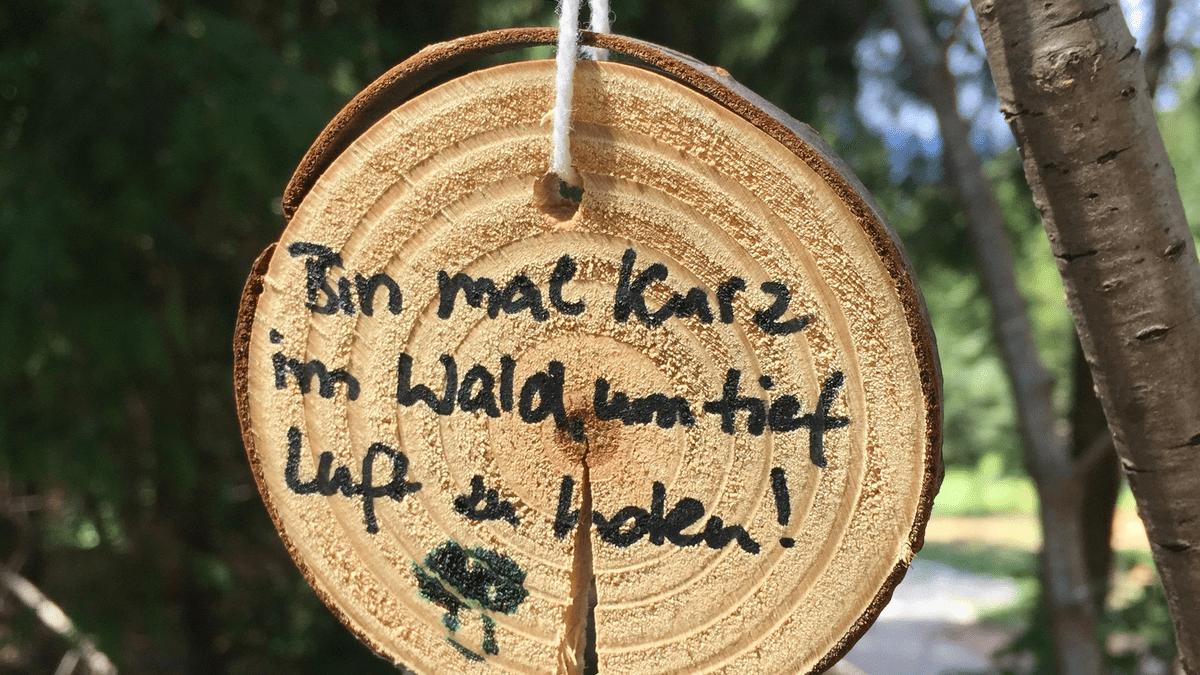 Bin mal kurz
im Wald, um tief
Luft zu holen!